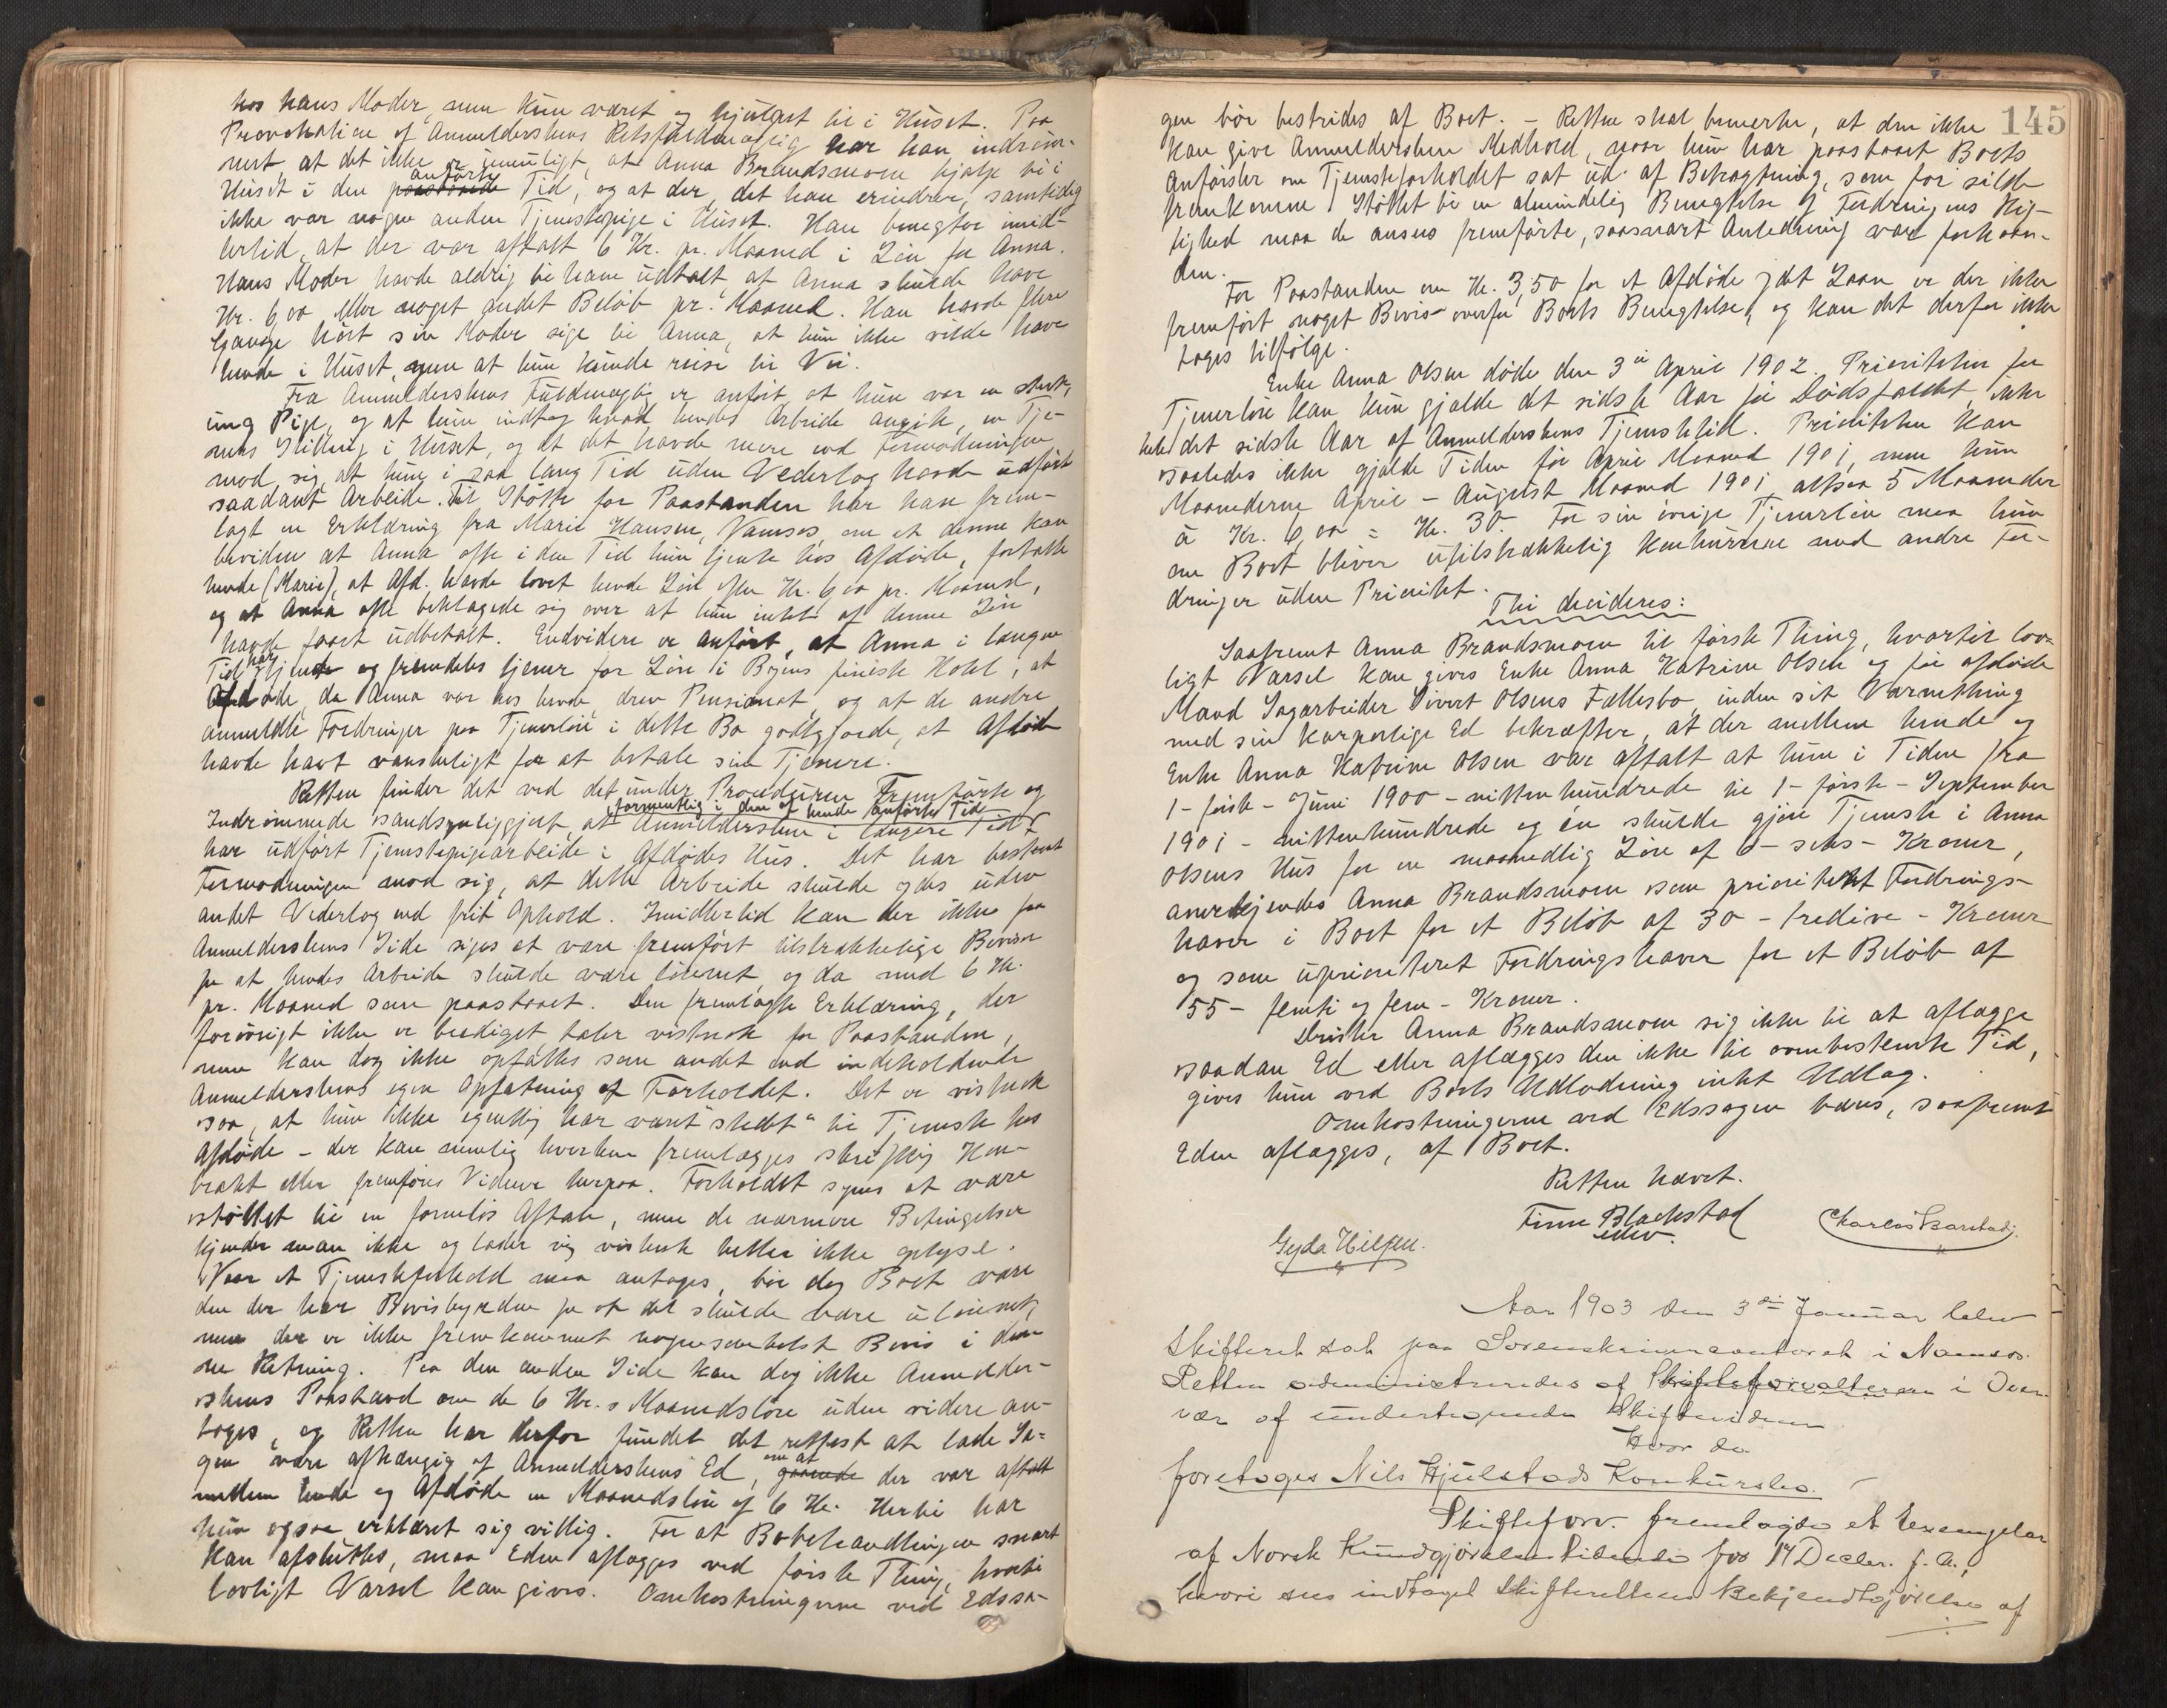 hos hans Moder, men kun været og hjulpet til i Huset. Paa
Provokation af Anmelderskens Retsfuldmægtig har han indrøm-
met at det ikke er umuligt, at Anna Brandsmoen hjalp til i
anførte
Huset i den paastaaede Tid, og at der, det han erindrer, samtidig
ikke var nogen anden Tjenestepige i Huset. Han benegter imid-
lertid, at der var aftalt 6 Kr. pr. Maaned i Løn for Anna.
Hans Moder havde aldrig til ham udtalt at Anna skulde have
Kr. 6,00 eller noget andet Beløb pr. Maaned. Han havde flere
Gange hørt sin Moder sige til Anna, at hun ikke vilde have
hende i Huset, men at hun kunde reise til
Fra Anmelderskens Fuldmægtig er anført, at hun var en sterk,
ung Pige, og at hun indtog hvad hendes Arbeide angik, en Tje-
ners Stilling i Huset, og at det havde mere end Formodningen
mod sig, at hun i saa lang Tid uden Vederlag havde udført
saadant Arbeide. Til Støtte for Paastanden har han frem-
lagt en Erklæring fra Marie Hansen, Namsos, om at denne kan
bevidne at Anna ofte i den Tid hun tjente hos Afdøde, fortalte
hende (Marie), at Afd. havde lovet hende Løn efter Kr. 6,00 pr. Maaned,
og at Anna ofte beklagede sig over at hun intet af denne Løn
havde faaet udbetalt. Endvidere er anført, at Anna i længere
har
Tid tjent og fremdeles tjener for Løn i Byens fineste Hotel, at
Afdøde, da Anna var hos hende, drev Pensionat, og at de andre
anmeldte Fordringer paa Tjenerløn i dette Bo godtgjorde, at Afdøde
havde havt vanskeligt for at betale sine Tjenere.
Retten finder det ved det under Proceduren Fremførte og
formentlig i den af hende anførte Tid
Indrømmede sandsynliggjort, at Anmeldersken i længere Tid
har udført Tjenestepigearbeide i Afdødes Hus. Det har bestemt
Formodningen mod sig, at dette Arbeide skulde ydes uden
andet Vederlag end frit Ophold. Imidlertid kan der ikke fra
Anmelderskens Side siges at være fremført tilstrækkelige Beviser
for at hendes Arbeide skulde være lønnet, og da med 6 Kr.
pr. Maaned som paastaaet. Den fremlagte Erklæring, der
forøvrigt ikke er beediget, taler vistnok for Paastanden,
men kan dog ikke opfattes som andet end indeholdende
Anmelderskens egen Opfatning af Forholdet. Det er vistnok
saa, at hun ikke egentlig har været "stedt" til Tjeneste hos
Afdøde – der kan nemlig hverken fremlægges skriftlig Kon-
trakt eller fremføres Vidner herpaa. Forholdet synes at være
støttet til en formløs Aftale, men de nærmere Betingelser
kjender man ikke og lader sig vistnok heller ikke oplyse.
Naar et Tjenesteforhold maa antages, bør dog Boet være
den der har Bevisbyrden for at det skulde være ulønnet,
men der er ikke fremkommet nogensomhelst Bevis i den-
ne Retning. Paa den anden Side kan dog ikke Anmelder-
skens Paastand om de 6 Kr.s Maanedsløn uden videre an-
tages, og Retten har derfor fundet det rettest at lade Sa-
om at
gen være afhængig af Anmelderskens Ed, gaaende der var aftalt
mellem hende og Afdøde en Maanedsløn af 6 Kr. Hertil har
hun ogsaa erklæret sig villig. For at Bobehandlingen snart
kan afsluttes, maa Eden aflægges ved første Thing, hvortil
lovligt Varsel kan gives. Omkostningerne ved Edssa-
145
gen bør bestrides af Boet. – Retten skal bemerke, at den ikke
kan give Anmeldersken Medhold, naar hun har paastaaet Boets
Anførsler om Tjenesteforholdet sat ud af Betragtning, som for silde
fremkomne. Støttet til en almindelig Benegtelse af Fordringens Rig-
tighed maa de ansees fremførte, saasnart Anledning var forhaan-
den.
For Paastanden om Kr. 3,50 for et Afdøde ydet Laan er der ikke
fremført noget Bevis overfor Boets Benegtelse, og kan det derfor ikke
tages tilfølge.
Enke Anna Olsen døde den 3die April 1902. Prioriteten for
Tjenerløn kan kun gjælde det sidste Aar før Dødsfaldet, ikke
hele det sidste Aar af Anmelderskens Tjenestetid. Prioriteten kan
saaledes ikke gjælde Tiden før April Maaned 1901, men kun
Maanederne April – August Maaned 1901, altsaa 5 Maaneder
à Kr. 6,00 = Kr. 30. For sin øvrige Tjenerløn maa hun
om Boet bliver utilstrækkelig konkurrere med andre For-
dringer uden Prioritet.
Thi decideres:
Saafremt Anna Brandsmoen til første Thing, hvortil lov-
ligt Varsel kan gives Enke Anna Katrine Olsen og før afdøde
Mand Sagarbeider Sivert Olsens Fællesbo, inden sitVærnething
med sin korporlige Ed bekræfter, at der mellem hende og
Enke Anna Katrine Olsen var aftalt at hun i Tiden fra
1 – første – Juni 1900 – nittenhundrede til 1 – første – September
1901 – nittenhundrede og én skulde gjøre Tjeneste i Anna
Olsens Hus for en maanedlig Løn af 6 – seks – Kroner,
anerkjendes Anna Brandsmoen som prioriteret Fordrings-
haver i Boet for et Beløb af 30 – tredive – Kroner
og som uprioriteret Fordringshaver for et Beløb af
55 – femti og fem – Kroner.
Drister Anna Brandsmoen sig ikke til at aflægge
saadan Ed eller aflægges den ikke til ovenbestemte Tid,
gives hun ved Boets Udlodning intet Udlæg.
Omkostningerne ved Edssagen bæres, saafremt
Eden aflægges, af Boet.
Retten hævet.
Finn Blackstad
edsv.
Gyda Hilpen.
Aar 1903 den 3die Januar blev
Skifteret sat paa Sorenskriverkontoret i Namsos.
Retten administreredes af Skifteforvalteren i Over-
vær af undertegnende Skiftevidner
Hvor da
foretoges Nils Hjulstads Konkursbo.
Skifteforv. fremlagde et Exemplar
af Norsk Kundgjørelsestidende for 17 Decbr. f. A.,
hvori sees indtaget Skifterettens Bekjendtgjørelse af